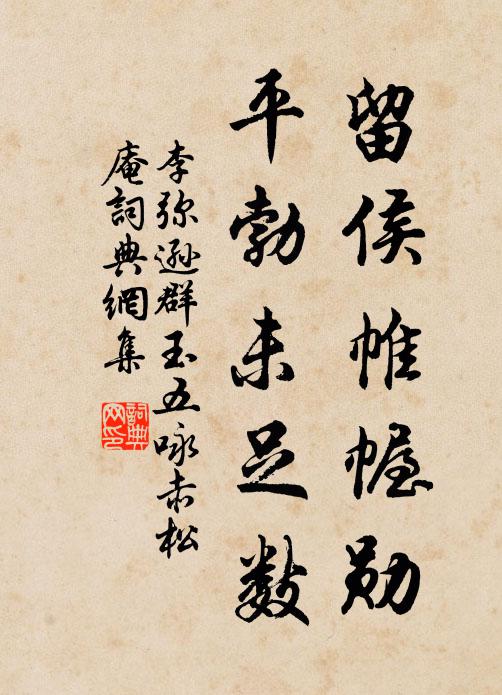 留侯帷幄勋
平勃未足数
李弥逊群玉五咏赤松
庵詞典網集
詞典
网印